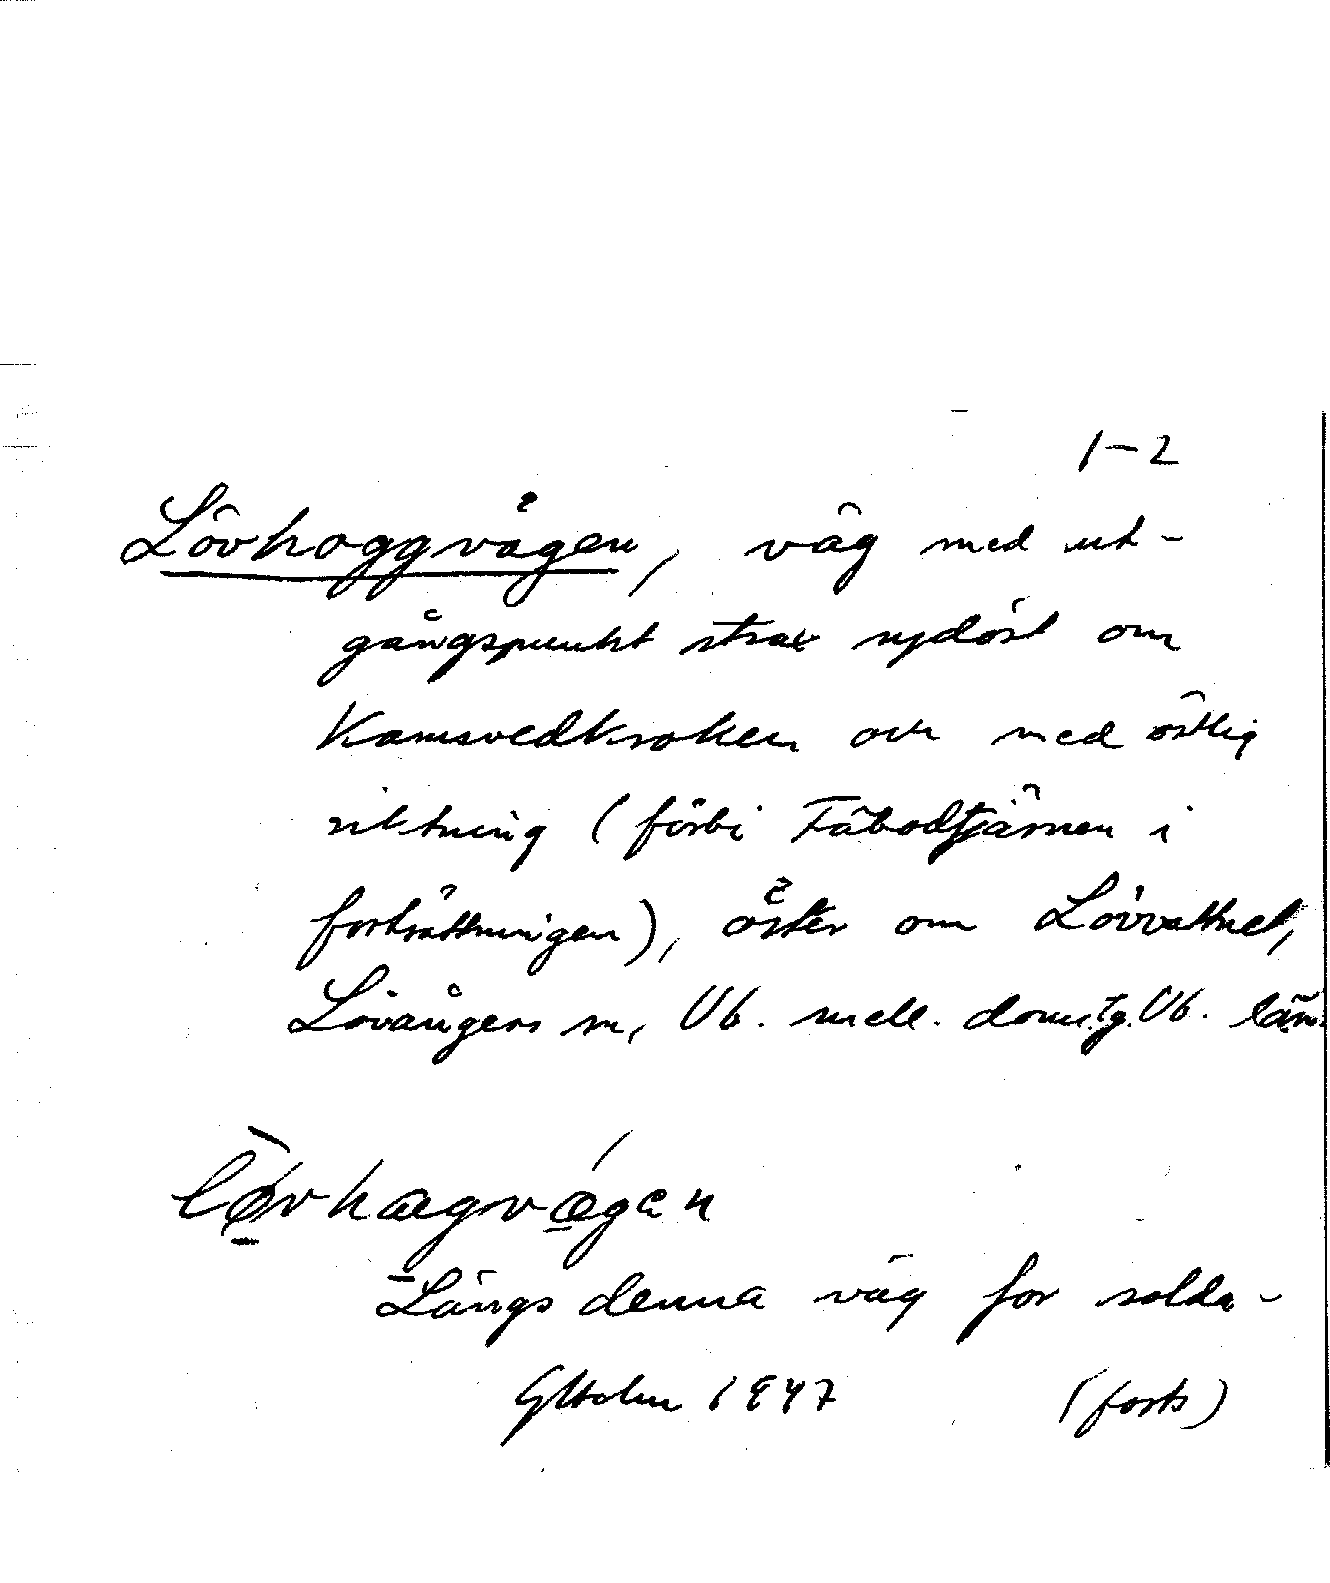 1-2
Lövhoggvägen, väg med ut-
gångspunkt strax sydöst om
Kamsvedkroken och med östlig
riktning (förbi Fäbodtjärnen i
fortsättningen), öster om Lövvattnet,
Lövångers sn, Vb. mell. domstg. Vb. län.
lø̄vhægvǽgen
Längs denna väg for solda-
GHolm 1947 (forts)